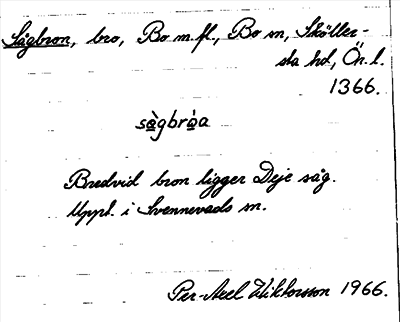 Sågbron, bro, Bo m.fl., Bo sn, Sköller-
sta hd, Ör. l.
1366.
sågbròa
Bredvid bron ligger Deje såg.
Uppt. i Svennevads sn.
Per-Axel Wiktorsson 1966.